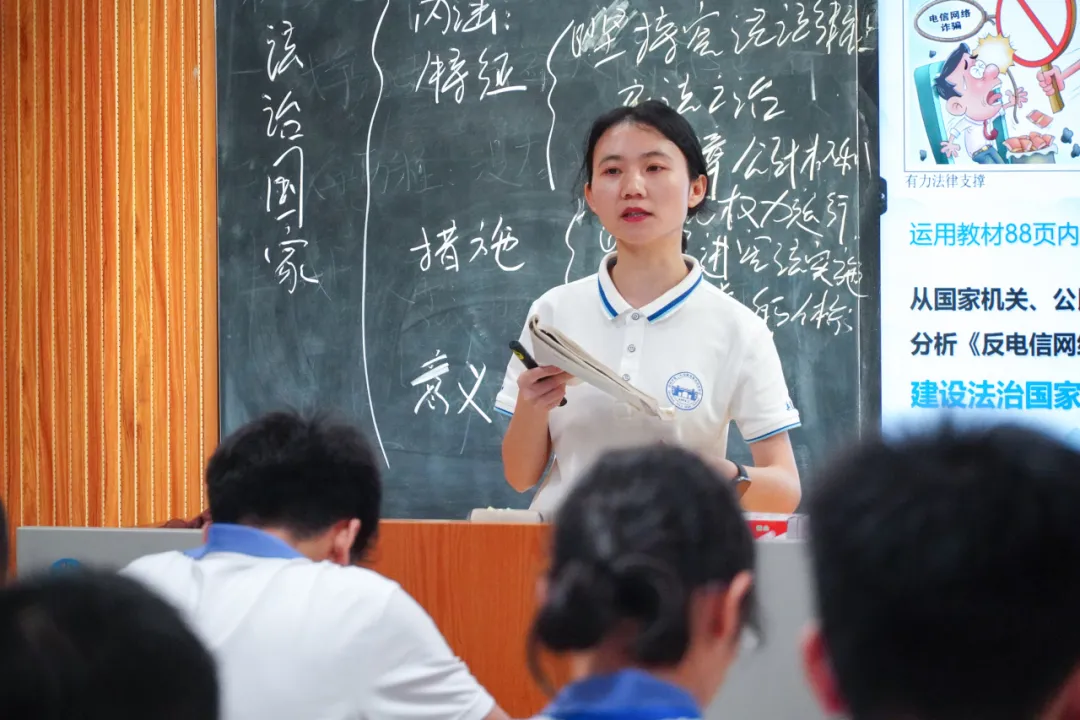 法治国家
内涵:
特征
措施
意义
①坚持宪法法律至上
主法主治
障公民权利
权力运行
进宪法实施
电信网络
诈骗
有力法律支撑
运用教材88页内
从国家机关、公
分析《反电信网
建设法治国家